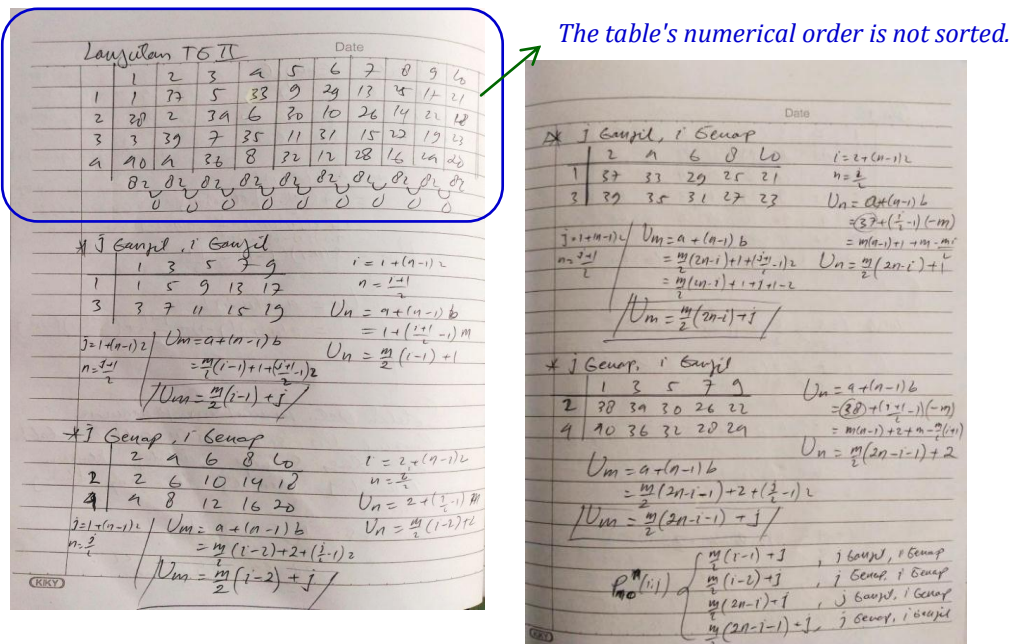 The table's numerical order is not sorted.
Lanjutan TGT
Date
1 2 3 4 5 6 7 8 9 10
1 1 37 5 33 9 29 13 25 17 21
2 38 2 34 6 30 10 26 14 22 18
3 3 39 7 35 11 31 15 27 19 23
4 40 4 36 8 32 12 28 16 24 20
82 82 82 82 82 82 82 82 82 82
0 0 0 0 0 0 0 0 0
* j Ganjil, i Ganjil
1 3 5 7 9
1 1 5 9 13 17
3 3 7 11 15 19
i = 1 + (n-1)2
n = (i+1)/2
Un = a + (n-1)b
= 1 + ((i+1)/2 - 1)m
Un = m/2 (i-1) + 1
j = 1 + (n-1)2
n = (j+1)/2
Um = a + (n-1)b
= m/2 (i-1) + 1 + ((j+1)/2 - 1)2
Um = m/2 (i-1) + j
* j Genap, i Genap
2 4 6 8 10
2 2 6 10 14 18
4 4 8 12 16 20
i = 2 + (n-1)2
n = i/2
Un = 2 + (i/2 - 1)m
Un = m/2 (i-2) + 2
j = 1 + (n-1)2
n = j/2
Um = a + (n-1)b
= m/2 (i-2) + 2 + (j/2 - 1)2
Um = m/2 (i-2) + j
KKY
Date
* j Ganjil, i Genap
2 4 6 8 10
1 37 33 29 25 21
3 39 35 31 27 23
i = 2 + (n-1)2
n = i/2
Un = a + (n-1)b
= 37 + (i/2 - 1)(-m)
= m(n-1) + 1 + m - mi/2
Un = m/2 (2n-i) + 1
j = 1 + (n-1)2
n = (j+1)/2
Um = a + (n-1)b
= m/2 (2n-i) + 1 + ((j+1)/2 - 1)2
= m/2 (2n-i) + 1 + j + 1 - 2
Um = m/2 (2n-i) + j
* j Genap, i Ganjil
1 3 5 7 9
2 38 34 30 26 22
4 40 36 32 28 24
Un = a + (n-1)b
= 38 + ((i+1)/2 - 1)(-m)
= m(n-1) + 2 + m - m/2 (i+1)
Un = m/2 (2n-i-1) + 2
Um = a + (n-1)b
= m/2 (2n-i-1) + 2 + (j/2 - 1)2
Um = m/2 (2n-i-1) + j
m/2 (i-1) + j , j Ganjil, i Genap
m/2 (i-2) + j , j Genap, i Genap
m/2 (2n-i) + j , j Ganjil, i Genap
m/2 (2n-i-1) + j, j Genap, i Ganjil
KKY